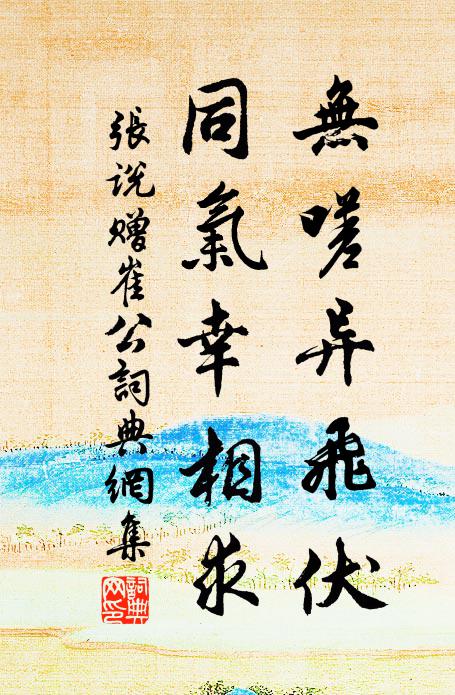 無嗟异飛伏
同氣幸相求
張説贈崔公詞典網集
詞典网印